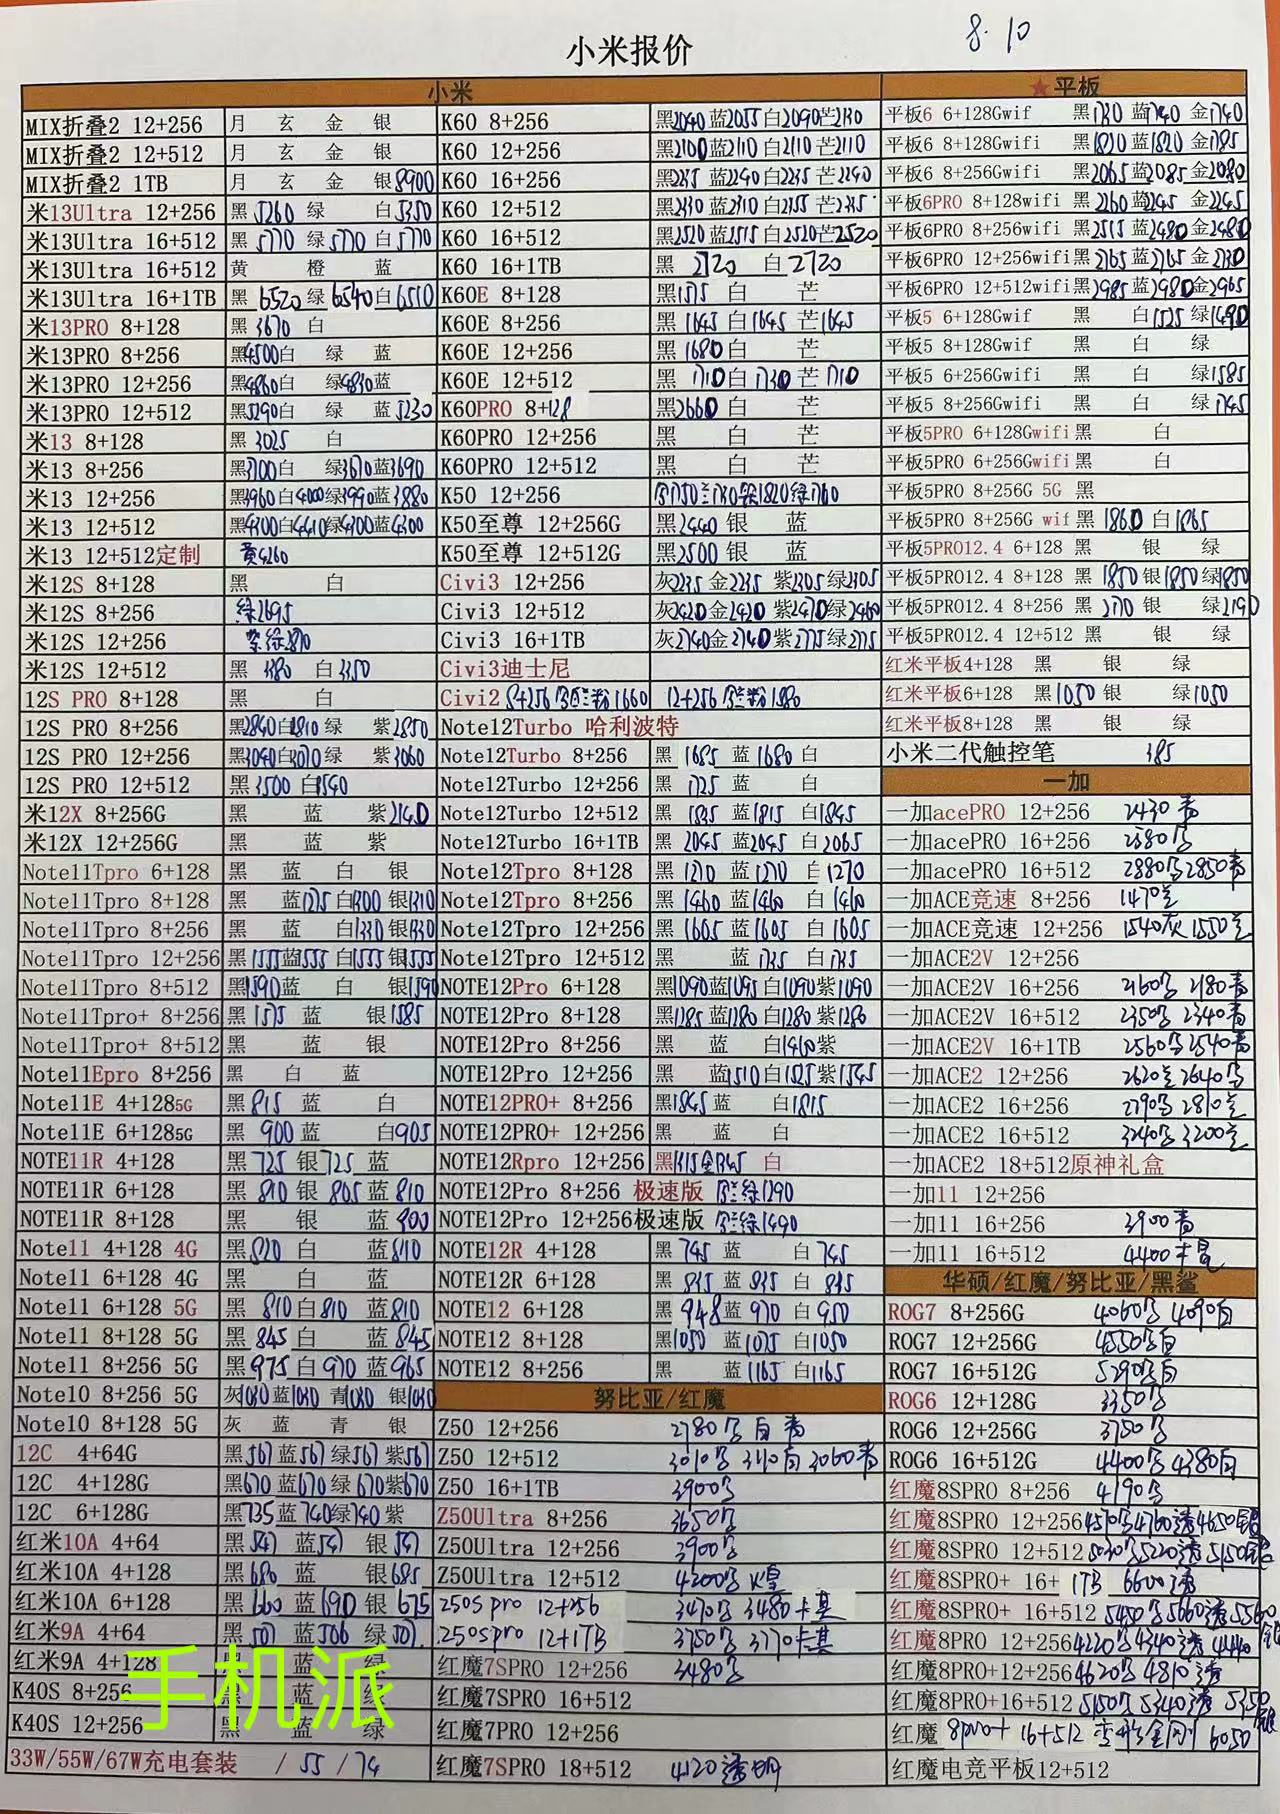 8.10
小米报价
小米
MIX折叠2 12+256 月 玄 金 银
MIX折叠2 12+512 月 玄 金 银
MIX折叠2 1TB 月 玄 金 银8900
米13Ultra 12+256 黑5260 绿 白5350
米13Ultra 16+512 黑5770 绿5770 白5770
米13Ultra 16+512 黄 橙 蓝
米13Ultra 16+1TB 黑6520 绿6540 白6510
米13PRO 8+128 黑3670 白
米13PRO 8+256 黑4500 白 绿 蓝
米13PRO 12+256 黑4860 白 绿4830 蓝
米13PRO 12+512 黑5290 白 绿 蓝5230
米13 8+128 黑3025 白
米13 8+256 黑3700 白 绿3670 蓝3690
米13 12+256 黑3960 白4000 绿3990 蓝3880
米13 12+512 黑4300 白4410 绿4300 蓝4300
米13 12+512定制 黄4260
米12S 8+128 黑 白
米12S 8+256 绿2695
米12S 12+256 紫绿2870
米12S 12+512 黑3380 白3350
12S PRO 8+128 黑 白
12S PRO 8+256 黑2840 白2810 绿 紫2850
12S PRO 12+256 黑3040 白3070 绿 紫3060
12S PRO 12+512 黑3500 白3540
米12X 8+256G 黑 蓝 紫2140
米12X 12+256G 黑 蓝 紫
Note11Tpro 6+128 黑 蓝 白 银
Note11Tpro 8+128 黑 蓝1275 白1300 银1310
Note11Tpro 8+256 黑 蓝 白1330 银1330
Note11Tpro 12+256 黑1555 蓝1555 白1555 银1555
Note11Tpro 8+512 黑1590 蓝 白 银1590
Note11Tpro+ 8+256 黑1575 蓝 银1585
Note11Tpro+ 8+512 黑 蓝 银
Note11Epro 8+256 黑 白 蓝
Note11E 4+1285G 黑815 蓝 白
Note11E 6+1285G 黑900 蓝 白905
NOTE11R 4+128 黑725 银725 蓝
NOTE11R 6+128 黑810 银805 蓝810
NOTE11R 8+128 黑 银 蓝900
Note11 4+128 4G 黑820 白 蓝840
Note11 6+128 4G 黑 白 蓝
Note11 6+128 5G 黑810 白810 蓝810
Note11 8+128 5G 黑845 白 蓝845
Note11 8+256 5G 黑975 白970 蓝965
Note10 8+256 5G 灰1030 蓝1030 青1030 银1030
Note10 8+128 5G 灰 蓝 青 银
12C 4+64G 黑567 蓝567 绿567 紫567
12C 4+128G 黑670 蓝670 绿670 紫670
12C 6+128G 黑735 蓝740 绿740 紫
红米10A 4+64 黑547 蓝547 银547
红米10A 4+128 黑680 蓝 银685
红米10A 6+128 黑660 蓝690 银675
红米9A 4+64 黑507 蓝506 绿507
红米9A 4+128 黑 蓝 绿
K40S 8+256 黑 蓝 绿
K40S 12+256 黑 蓝 绿
33W/55W/67W充电套装 / 55 / 74
K60 8+256 黑2040 蓝2055 白2090 芒2130
K60 12+256 黑2100 蓝2110 白2110 芒2110
K60 16+256 黑2235 蓝2240 白2235 芒2240
K60 12+512 黑2330 蓝2310 白2355 芒2335
K60 16+512 黑2520 蓝2515 白2520 芒2520
K60 16+1TB 黑2720 白2720
K60E 8+128 黑1575 白 芒
K60E 8+256 黑1645 白1645 芒1645
K60E 12+256 黑1680 白 芒
K60E 12+512 黑1710 白1730 芒1710
K60PRO 8+128 黑2660 白 芒
K60PRO 12+256 黑 白 芒
K60PRO 12+512 黑 白 芒
K50 12+256
K50至尊 12+256G 黑2440 银 蓝
K50至尊 12+512G 黑2500 银 蓝
Civi3 12+256 灰2235 金2235 紫2305 绿2305
Civi3 12+512 灰2420 金2420 紫2470 绿2460
Civi3 16+1TB 灰2740 金2740 紫2775 绿2775
Civi3迪士尼
Civi2 8+256 兰粉1660 12+256 兰粉1880
Note12Turbo 哈利波特
Note12Turbo 8+256 黑1685 蓝1680 白
Note12Turbo 12+256 黑1725 蓝 白
Note12Turbo 12+512 黑1835 蓝1815 白1845
Note12Turbo 16+1TB 黑2045 蓝2045 白2065
Note12Tpro 8+128 黑1270 蓝1270 白1270
Note12Tpro 8+256 黑1460 蓝1460 白1460
Note12Tpro 12+256 黑1605 蓝1605 白1605
Note12Tpro 12+512 黑 蓝1735 白1735
NOTE12Pro 6+128 黑1090 蓝1095 白1090 紫1090
NOTE12Pro 8+128 黑1285 蓝1280 白1280 紫1280
NOTE12Pro 8+256 黑 蓝 白1460 紫
NOTE12Pro 12+256 黑 蓝1510 白1525 紫1545
NOTE12PRO+ 8+256 黑1845 蓝 白1815
NOTE12PRO+ 12+256 黑 蓝 白
NOTE12Rpro 12+256 黑1315 金1345 白
NOTE12Pro 8+256 极速版 兰绿1290
NOTE12Pro 12+256极速版 兰绿1490
NOTE12R 4+128 黑745 蓝 白745
NOTE12R 6+128 黑835 蓝835 白835
NOTE12 6+128 黑948 蓝970 白950
NOTE12 8+128 黑1050 蓝1075 白1050
NOTE12 8+256 黑 蓝1165 白1165
努比亚/红魔
Z50 12+256 2780黑 白 青
Z50 12+512 3010黑 3110白 3060青
Z50 16+1TB 3900黑
Z50Ultra 8+256 3650黑
Z50Ultra 12+256 3900黑
Z50Ultra 12+512 4200黑
Z50S pro 12+256 3470黑 3480卡其
Z50S pro 12+1TB 3750黑 3770卡其
红魔7SPRO 12+256 3480黑
红魔7SPRO 16+512
红魔7PRO 12+256
红魔7SPRO 18+512 4120透明
★平板
平板6 6+128Gwif 黑1730 蓝1740 金1740
平板6 8+128Gwifi 黑1820 蓝1820 金1785
平板6 8+256Gwifi 黑2065 蓝2085 金2080
平板6PRO 8+128wifi 黑2260 蓝2245 金2245
平板6PRO 8+256wifi 黑2515 蓝2480 金2480
平板6PRO 12+256wifi 黑2765 蓝2765 金2730
平板6PRO 12+512wifi 黑2985 蓝2980 金2965
平板5 6+128Gwif 黑 白1525 绿1490
平板5 8+128Gwif 黑 白 绿
平板5 6+256Gwifi 黑 白 绿1585
平板5 8+256Gwifi 黑 白 绿1745
平板5PRO 6+128Gwifi 黑 白
平板5PRO 6+256Gwifi 黑 白
平板5PRO 8+256G 5G 黑
平板5PRO 8+256G wif 黑1860 白1865
平板5PRO12.4 6+128 黑 银 绿
平板5PRO12.4 8+128 黑1850 银1850 绿1850
平板5PRO12.4 8+256 黑2170 银 绿2190
平板5PRO12.4 12+512 黑 银 绿
红米平板4+128 黑 银 绿
红米平板6+128 黑1050 银 绿1050
红米平板8+128 黑 银 绿
小米二代触控笔 385
一加
一加acePRO 12+256 2430青
一加acePRO 16+256 2580黑
一加acePRO 16+512 2880黑 2850青
一加ACE竞速 8+256 1470兰
一加ACE竞速 12+256 1540灰 1550兰
一加ACE2V 12+256
一加ACE2V 16+256 2160黑 2180青
一加ACE2V 16+512 2350黑 2340青
一加ACE2V 16+1TB 2560黑 2540青
一加ACE2 12+256 2620兰 2640黑
一加ACE2 16+256 2790黑 2810兰
一加ACE2 16+512 3240黑 3200兰
一加ACE2 18+512原神礼盒
一加11 12+256
一加11 16+256 3900青
一加11 16+512 4400
华硕/红魔/努比亚/黑鲨
ROG7 8+256G 4060黑 4090白
ROG7 12+256G 4550黑白
ROG7 16+512G 5290黑白
ROG6 12+128G 3350黑
ROG6 12+256G 3750黑
ROG6 16+512G 4400黑 4380白
红魔8SPRO 8+256 4190黑
红魔8SPRO 12+256 4510黑 4760透 4650银
红魔8SPRO 12+512 5030黑 5220透 5150银
红魔8SPRO+ 16+ 1TB 6600透
红魔8SPRO+ 16+512 5450黑 5660透 5560银
红魔8PRO 12+256 4220黑 4340透 4440
红魔8PRO+12+256 4620黑 4810透
红魔8PRO+16+512 5150黑 5340透 5350银
红魔 8pro+ 16+512 变形金刚 6050
红魔电竞平板12+512
手机派